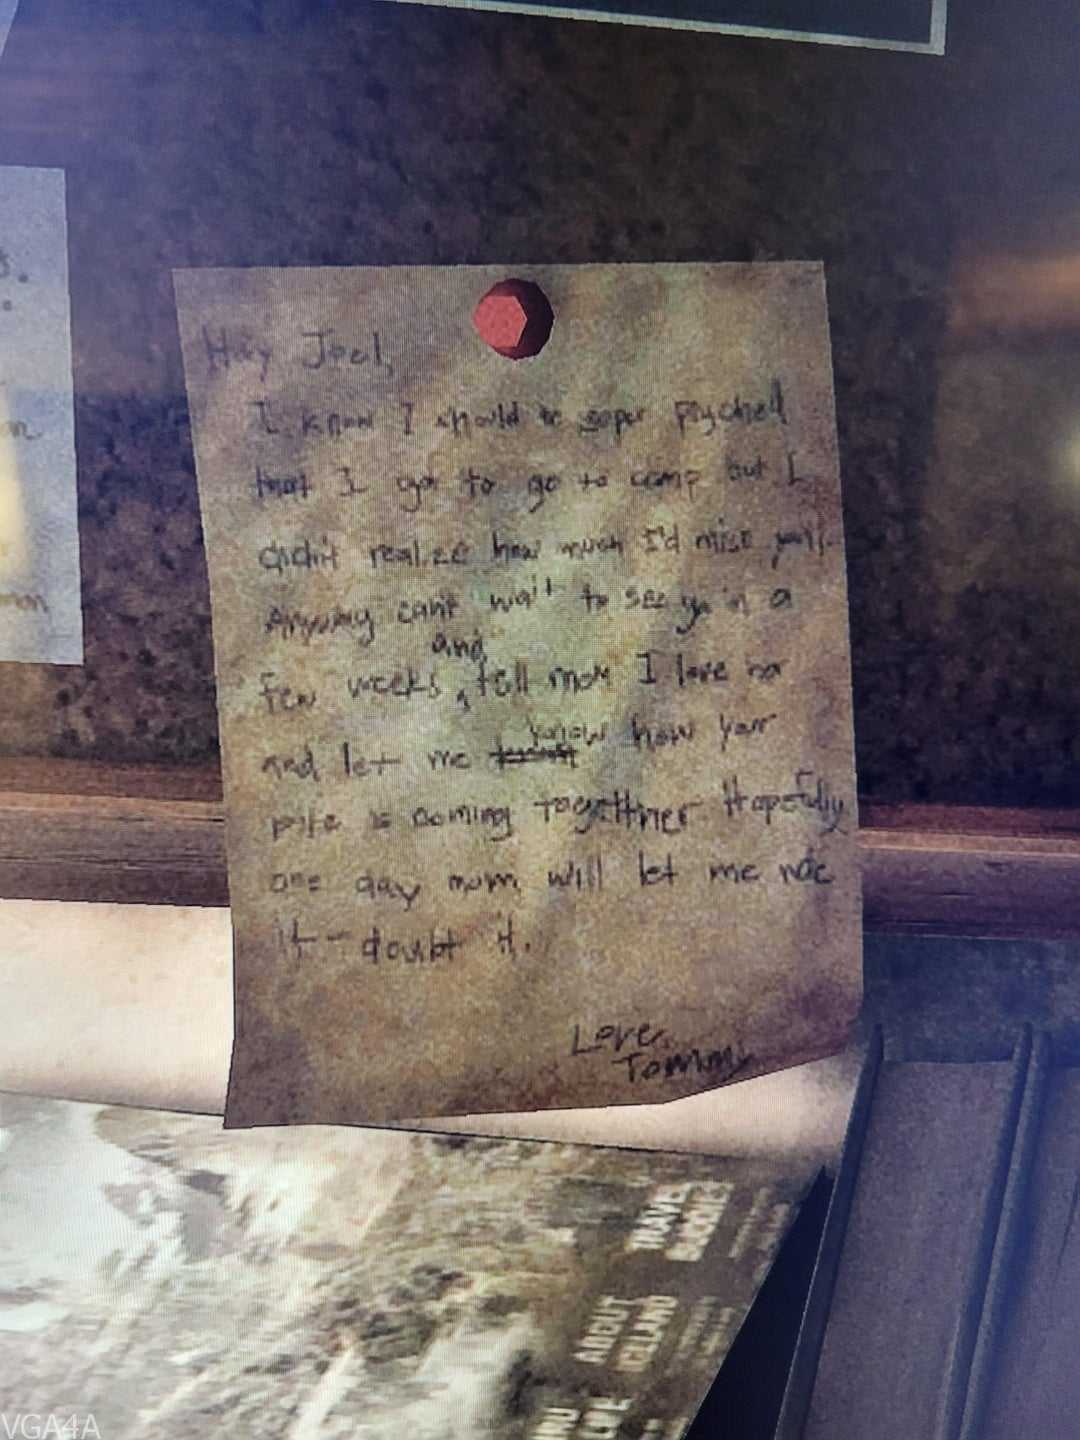 Hey Joel,
I know I should be super psyched
that I got to go to camp but I
didn't realize how much I'd miss yall.
Anyway can't wait to see ya in a
few weeks, and tell mom I love her
and let me know how your
bike is coming togetther. Hopefully
one day mom will let me ride
it - doubt it.
Love,
Tommy
TRAVEL
ABOUT
ICELAND
VGA4A